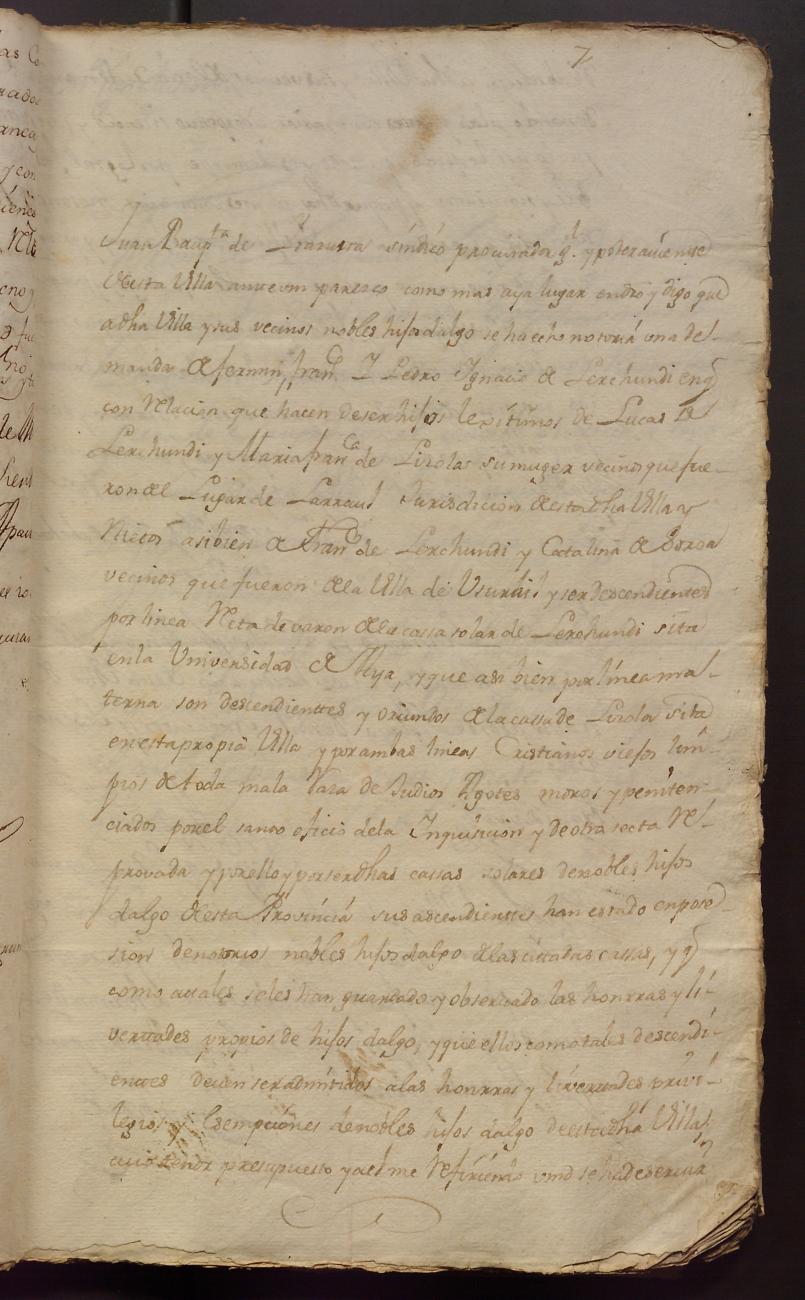 7
Juan Baupta de Yrarutra sindico procurador gl. y poteraviente
desta Villa ante vm paresco como mas aya lugar en dro y digo que
a dha Villa y sus vecinos nobles hijosdalgo se ha echo notoria una de-
manda de fermin, franco. I Pedro Ignacio de Lerchundi en q
con Relacion que hacen de ser hijos lexitimos de Lucas de
Lerchundi y Maria franca de Lizola su muger vecinos que fue-
ron del Lugar de Larraul Jurisdicion desta dha Villa y
Nietos asibien de Franco de Lerchundi y Catalina de
vecinos que fueron de la Villa de Usurbil y ser descendientes
por linea Reta de varon de la cassa solar de Lerchundi sita
en la Universidad de Aya, y que asi bien por linea ma-
terna son descendienttes y oriundos de la cassa de Lizola sita
en esta propia Villa y por ambas lineas Cristianos viejos lim-
pios de toda mala Raza de Judios Agotes moros y peniten-
ciados por el santo oficio de la Inquisicion y de otra secta Re-
provada y por ello y por ser dhas cassas solares de nobles hijos
dalgo de esta Provincia sus ascendienttes han estado en pose-
sion de notorios nobles hijos dalgo de las cittadas cassas, y q
como a tales se les han guardado y observado las honrras y li-
vertades propios de hijos dalgo, y que ellos como tales descendi-
entes deven ser admitidos a las honrras y livertades privi-
legios y Esempciones de nobles hijos dalgo de esta dha Villa,
cuio tenor presupuesto y a el me Refiriendo vmd se ha de servir